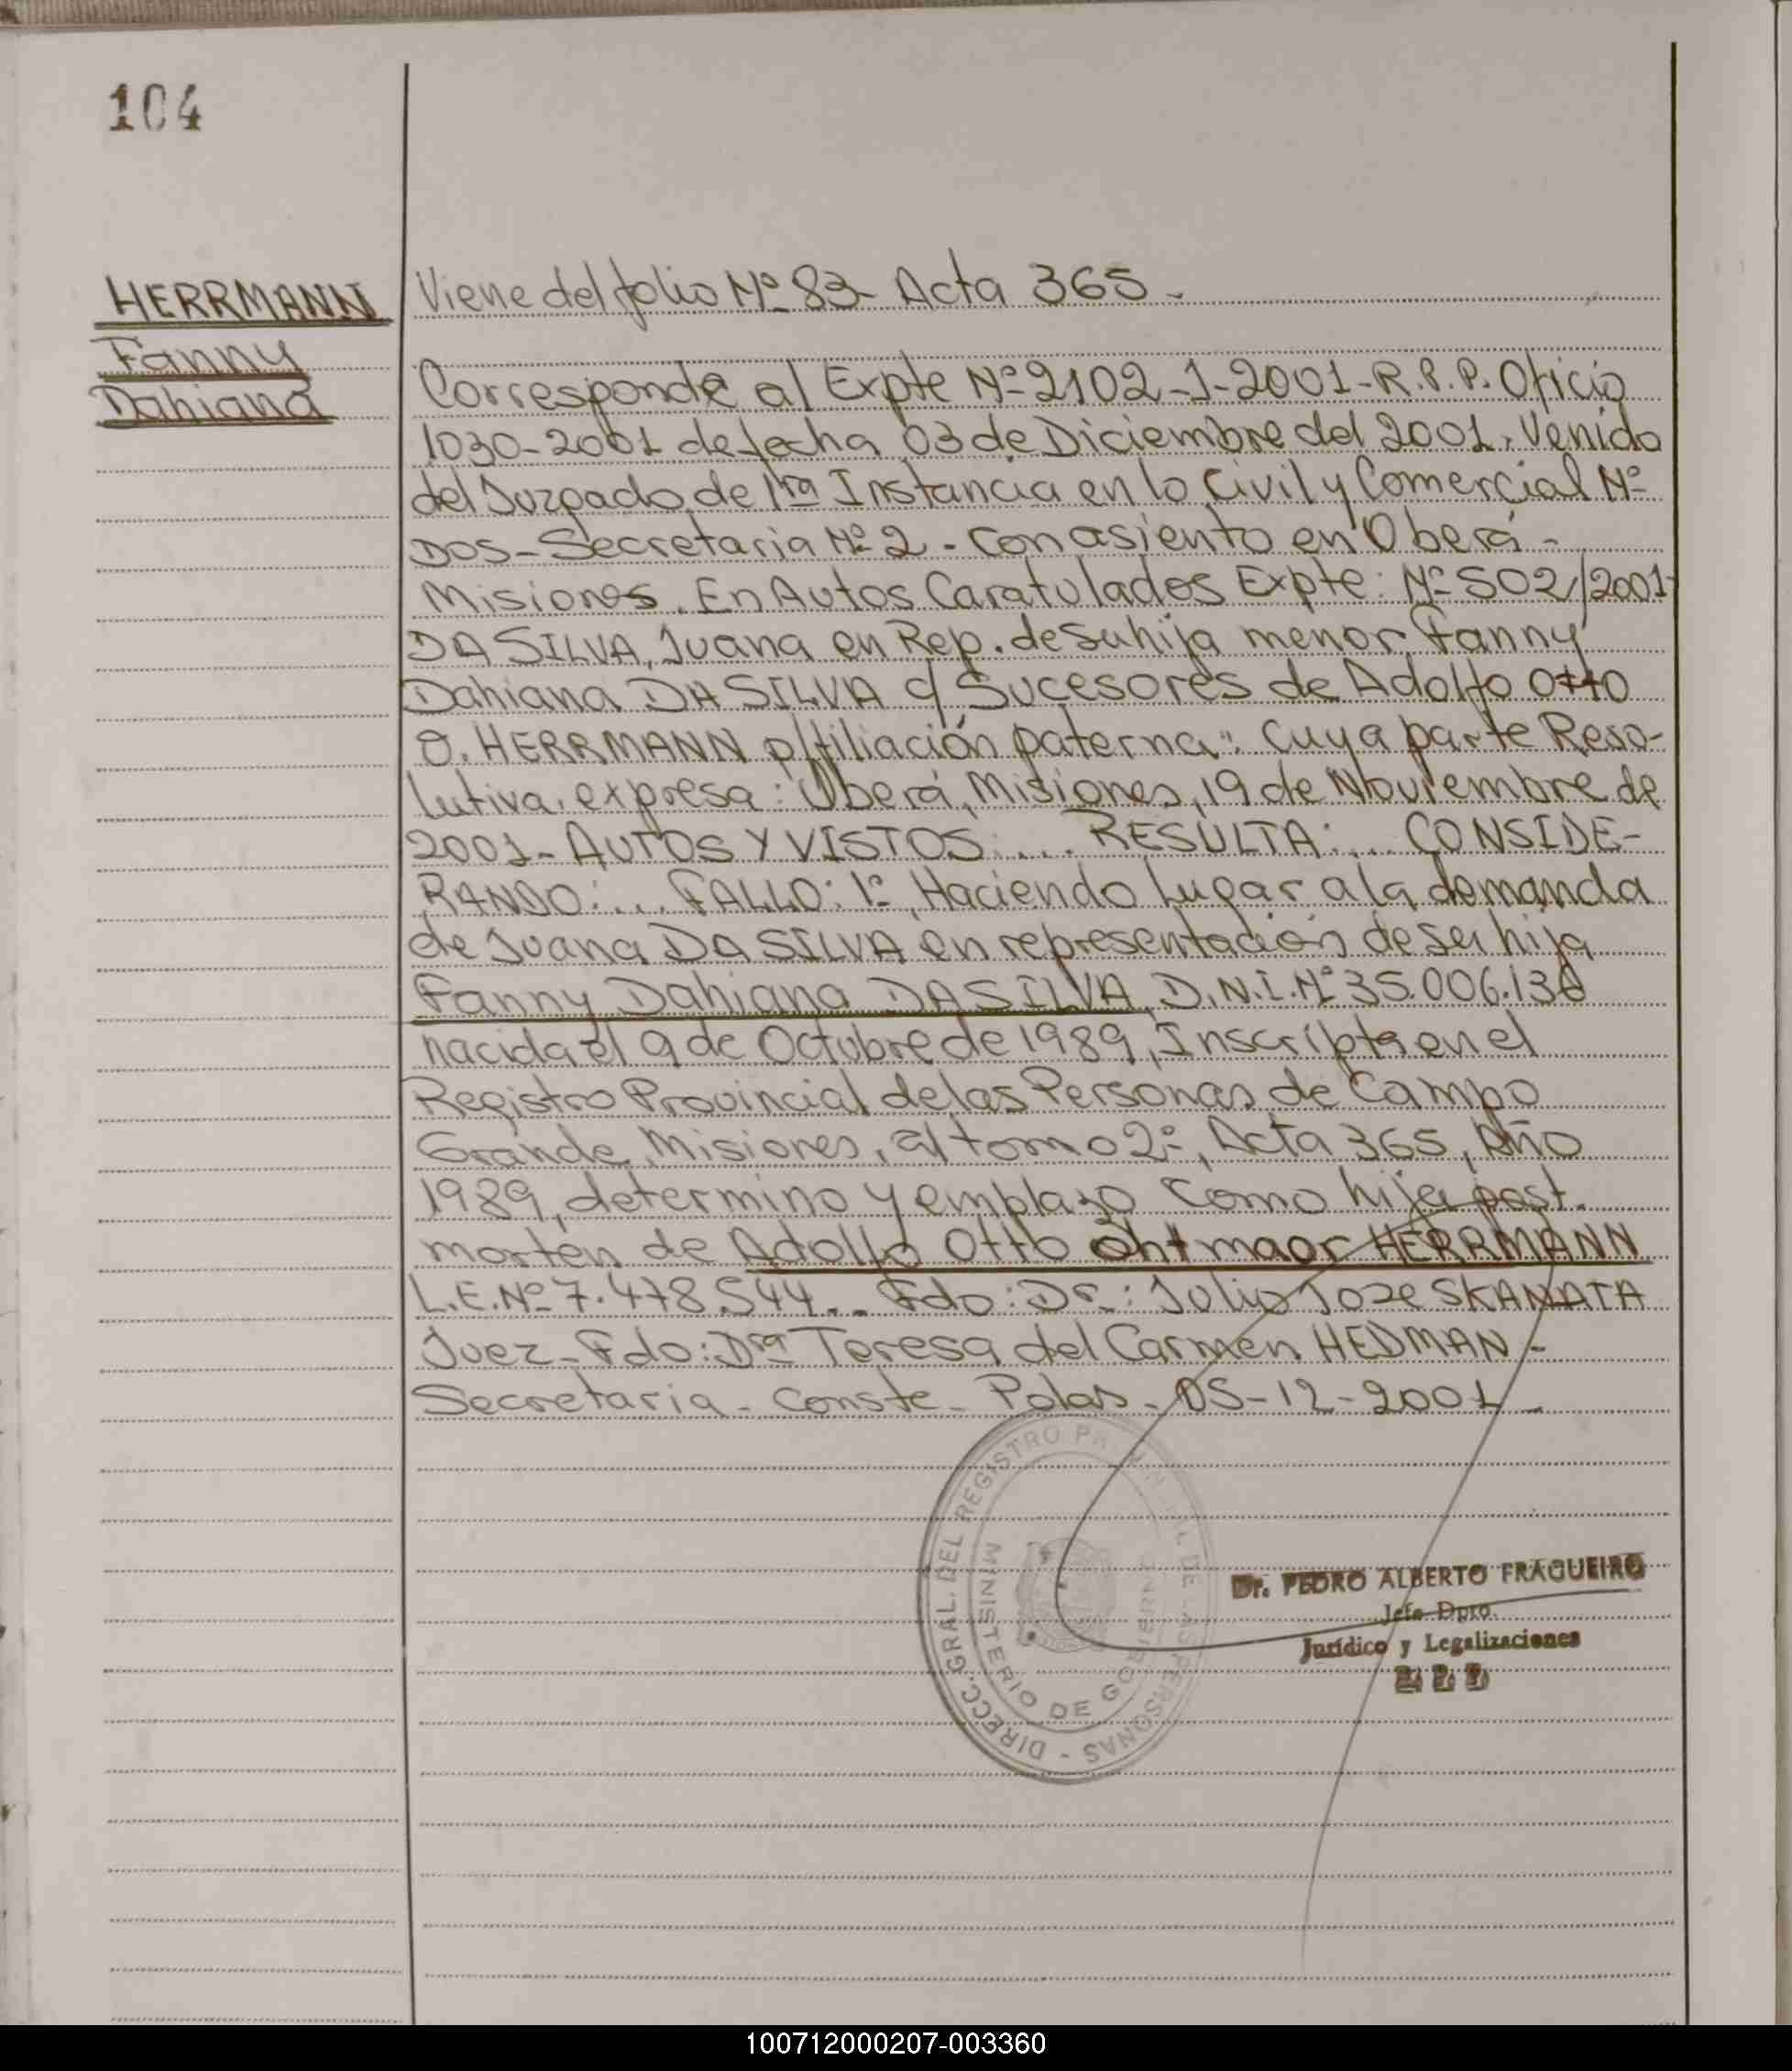 104
HERRMANN
Fanny
Dahiana
Viene del folio Nº 83 - Acta 365 -
Corresponde al Expte Nº 2102-1-2001-R.P.P. Oficio
1030-2001 de fecha 03 de Diciembre del 2001, Venido
del Juzgado de 1ra Instancia en lo Civil y Comercial Nº
DOS - Secretaria Nº 2 - con asiento en Oberá -
Misiones. En Autos Caratulados Expte: Nº 502/2001
DA SILVA, Juana en Rep. de su hija menor Fanny
Dahiana DA SILVA c/ Sucesores de Adolfo Otto
O. HERRMANN p/filiación paterna". Cuya parte Reso-
lutiva, expresa: Oberá, Misiones, 19 de Noviembre de
2001 - AUTOS Y VISTOS: ... RESULTA: ... CONSIDE-
RANDO: ... FALLO: 1º, Haciendo Lugar a la demanda
de Juana DA SILVA en representación de su hija
Fanny Dahiana DA SILVA, D.N.I. Nº 35.006.136
nacida el 9 de Octubre de 1989, Inscripta en el
Registro Provincial de las Personas de Campo
Grande, Misiones, al tomo 2º, Acta 365, Año
1989, determino y emplazo como hija post.
morten de Adolfo Otto Ohtmaor HERRMANN
L.E. Nº 7.478.544.. Fdo: Dr.: Julio Jose SKANATA
Juez - Fdo: Dra Teresa del Carmen HEDMAN -
Secretaria - Conste - Pdas - 05-12-2001 -
DIRECC. GRAL. DEL REGISTRO PROVINCIAL DE LAS PERSONAS -
MINISTERIO DE GOBIERNO
Dr. PEDRO ALBERTO FRAGUEIRO
Jefe Dpto.
Jurídico y Legalizaciones
100712000207-003360